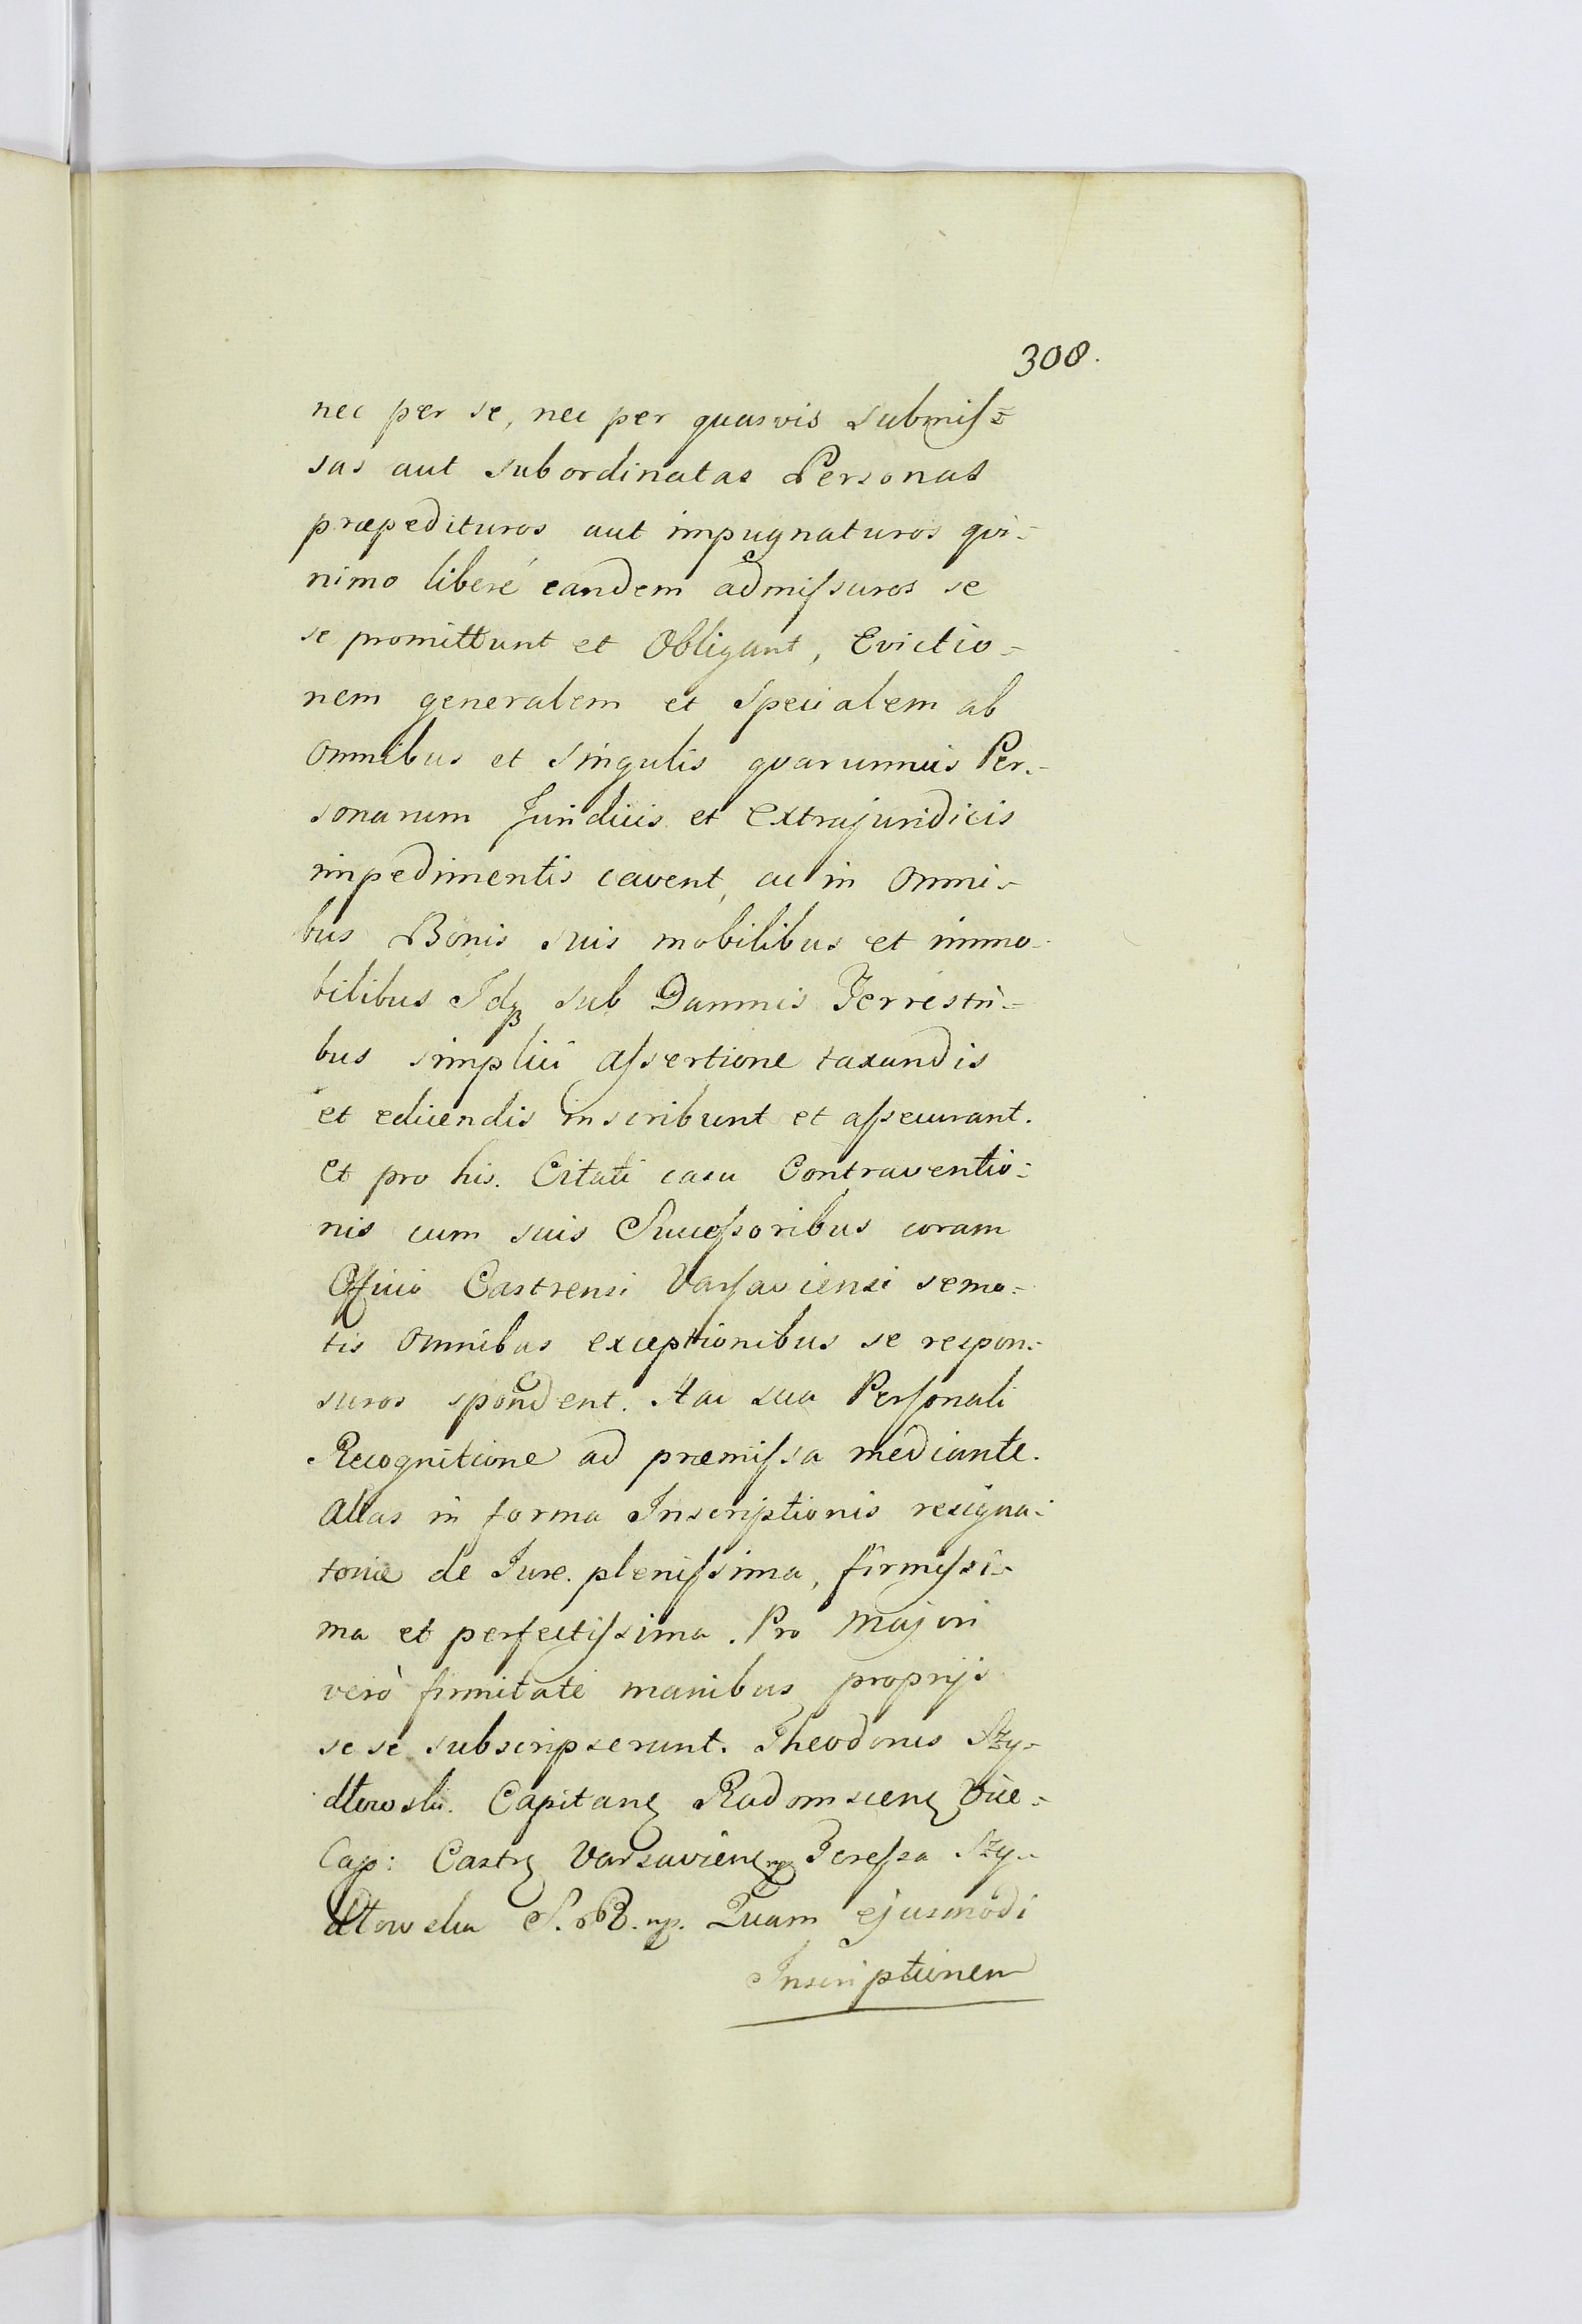 308.
nec per se, nec per quasvis submis=
sas aut subordinatas Personas
præpedituros aut impugnaturos qvi=
nimo liberè eandem admissuros se
se promittunt et Obligant, Evictio=
nem generalem et specialem ab
omnibus et singulis qvarumvis Per=
sonarum Juridicis et Extrajuridicis
impedimentis cavent, ac in omni=
bus Bonis suis mobilibus et immo=
bilibus Idqȝ sub Damnis Terrestri=
bus simplici assertione taxandis
et edicendis inscribunt et assecurant.
et pro his. Citati casu Contraventio=
nis cum suis Successoribus coram
Officio Castrensi Varsaviensi semo=
tis omnibus exceptionibus se respon=
suros spondent. Hac sua Personali
Recognitione ad præmissa mediante.
Alias in forma Inscriptionis resigna=
toriæ de Jure. plenissima, firmissi=
ma et perfectissima. Pro majori
verò firmitate manibus proprijs
se se subscripserunt. Theodorus Szy=
dłowski. Capitanę Radomscienę Vice=
Cap: Castrę Varsavienę mp Teressa Szy=
dłowska S. R. mp. Quam ejusmodi
Inscriptionem